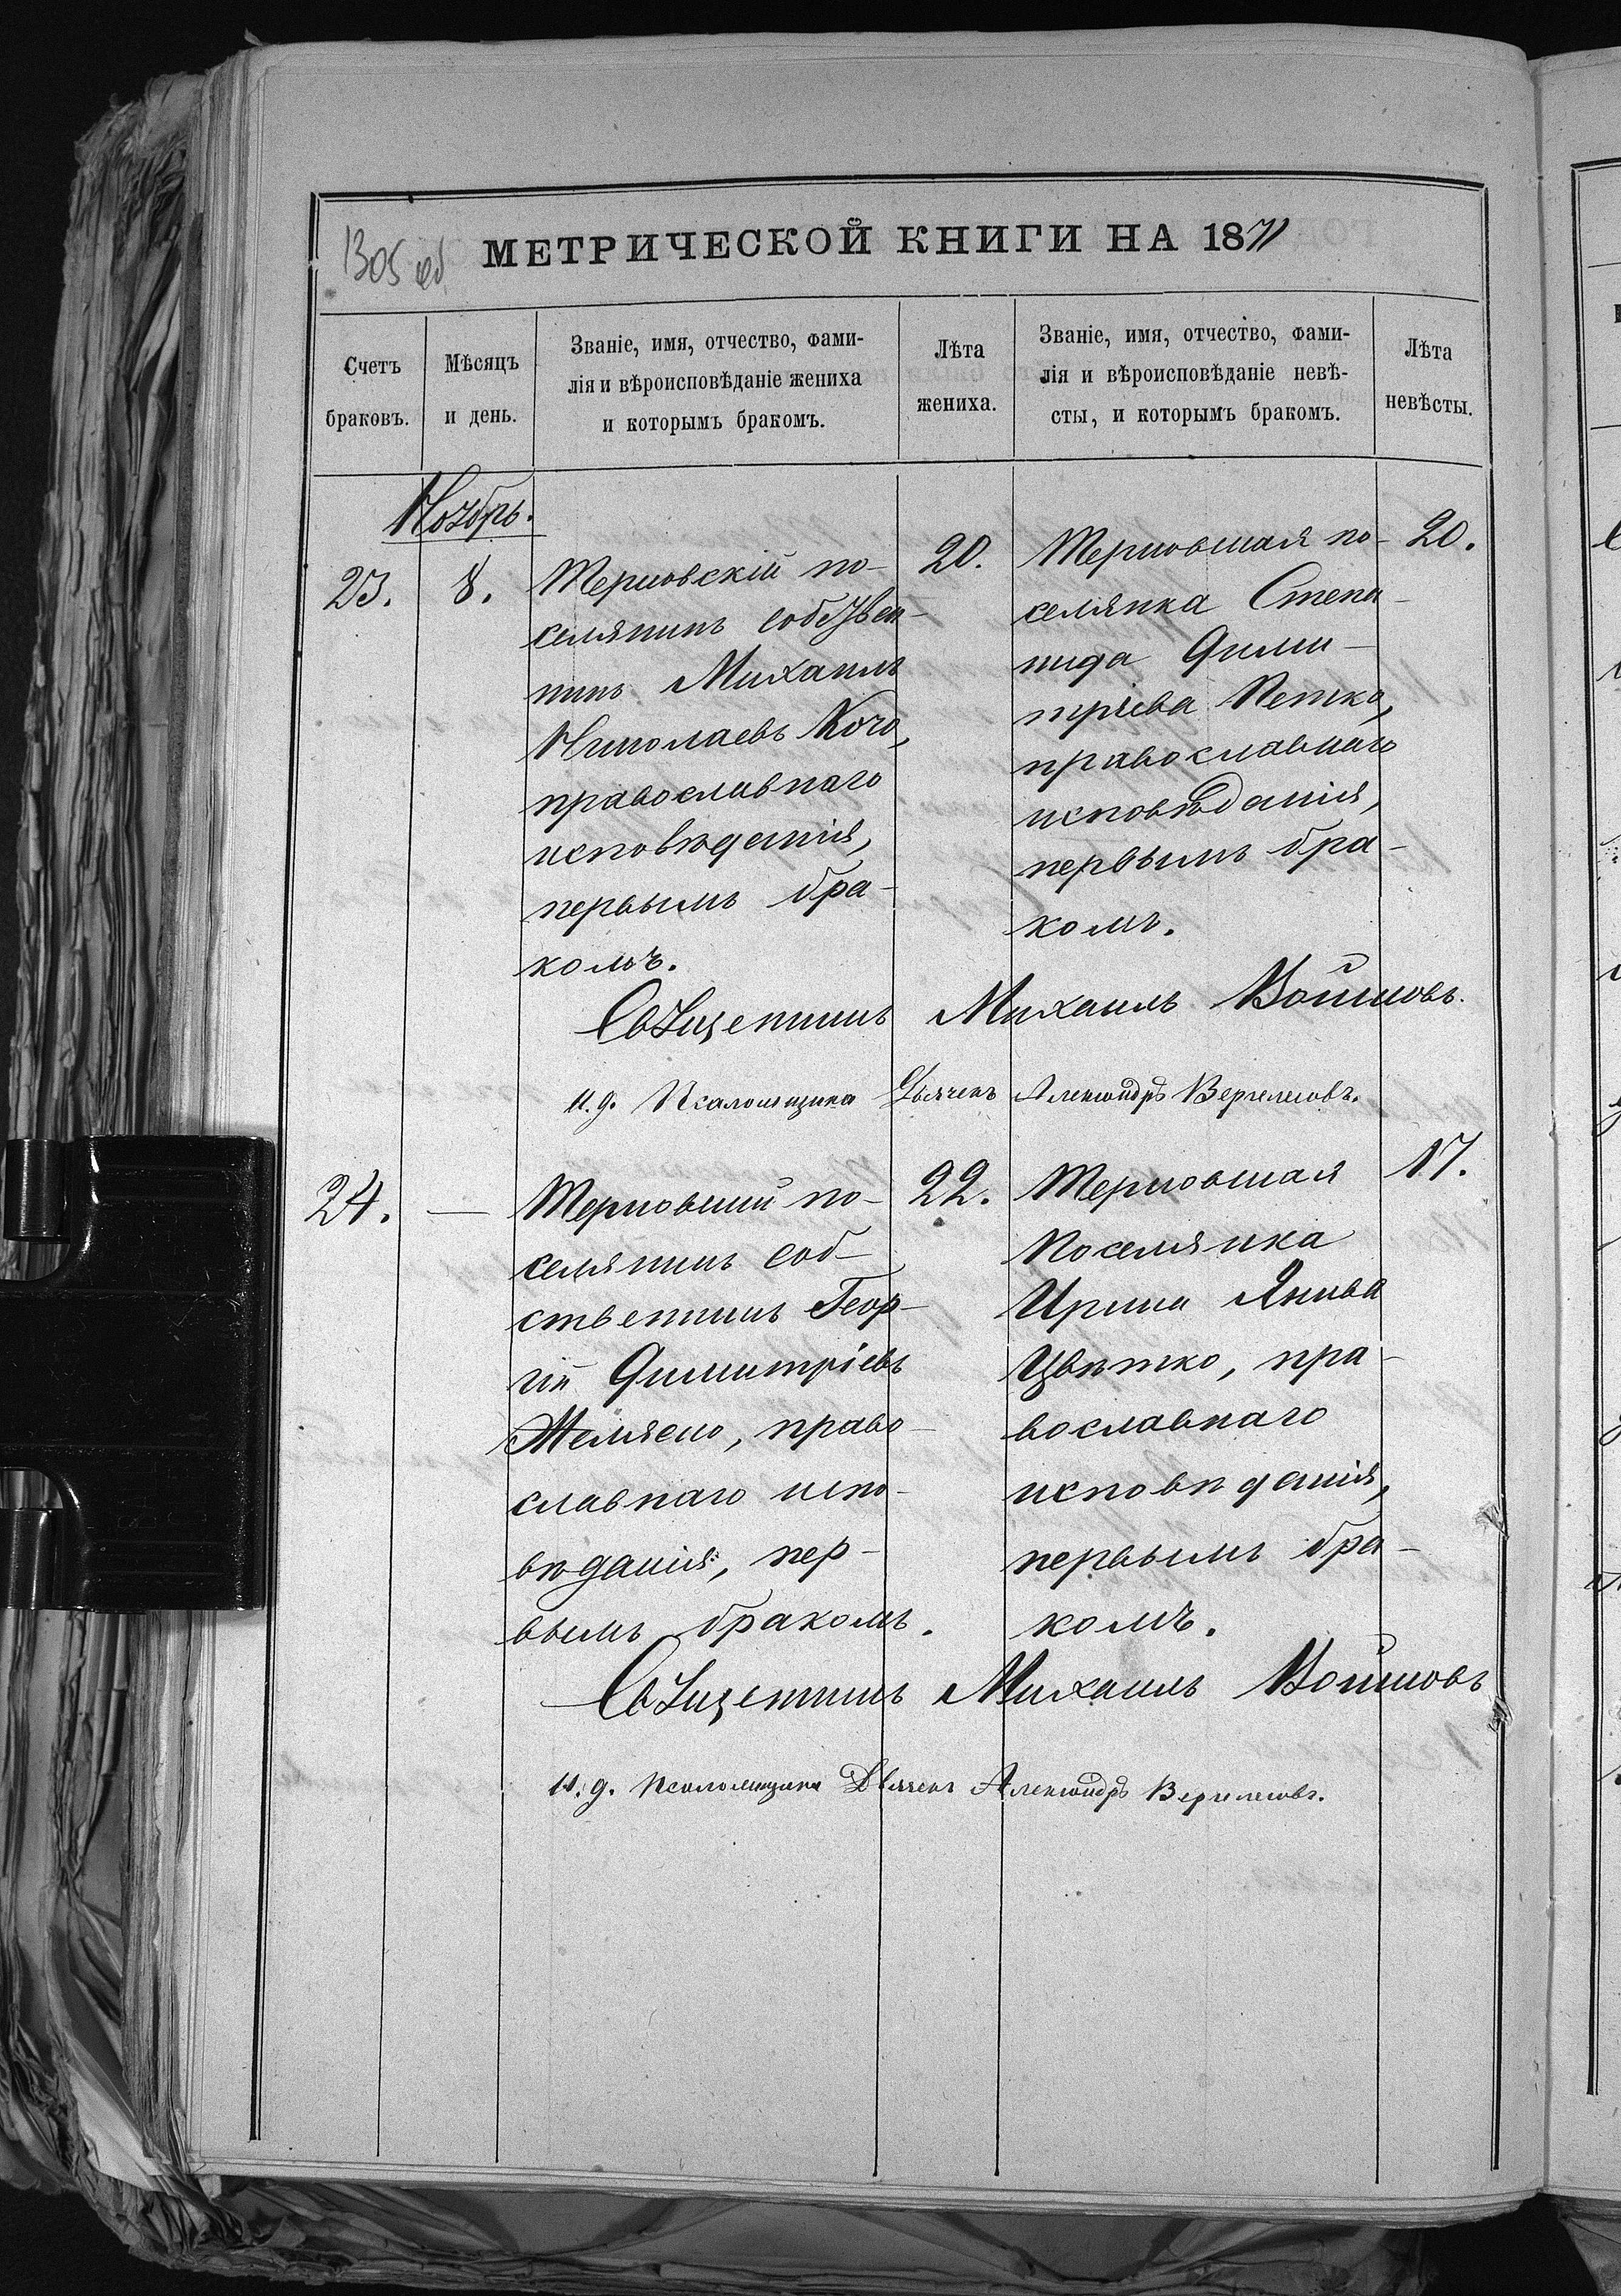 1305 об
МЕТРИЧЕСКОЙ КНИГИ НА 1871
Счетъ
браковъ.
Мѣсяцъ
и день.
Званіе, имя, отчество, фами-
лія и вѣроисповѣданіе жениха
и которымъ бракомъ.
Лѣта
жениха.
Званіе, имя, отчество, фами-
лія и вѣроисповѣданіе невѣ-
сты, и которымъ бракомъ.
Лѣта
невѣсты.
Ноябрь.
23.
8.
Терновскій по-
селянинъ собствен-
никъ Михаилъ
Николаевъ Кочо,
православнаго
исповѣданія,
первымъ бра-
комъ.
20.
Терновская по-
селянка Степа-
нида Дими-
тріева Петко,
православнаго
исповѣданія,
первымъ бра-
комъ.
20.
Священникъ Михаилъ Войновъ.
и. д. Псаломщика Дьячекъ Александръ
24.
—
Терновский по-
селянинъ соб-
ственникъ Геор-
гій Димитріевъ
Желяско, право-
славнаго испо-
вѣданія, пер-
вымъ бракомъ.
22.
Терновская
Поселянка
Ирина Янива
Цвѣтко, пра-
вославнаго
исповѣданія,
первымъ бра-
комъ.
17.
Священникъ Михаилъ Войновъ
и. д. Псаломщика Дьячекъ Александръ